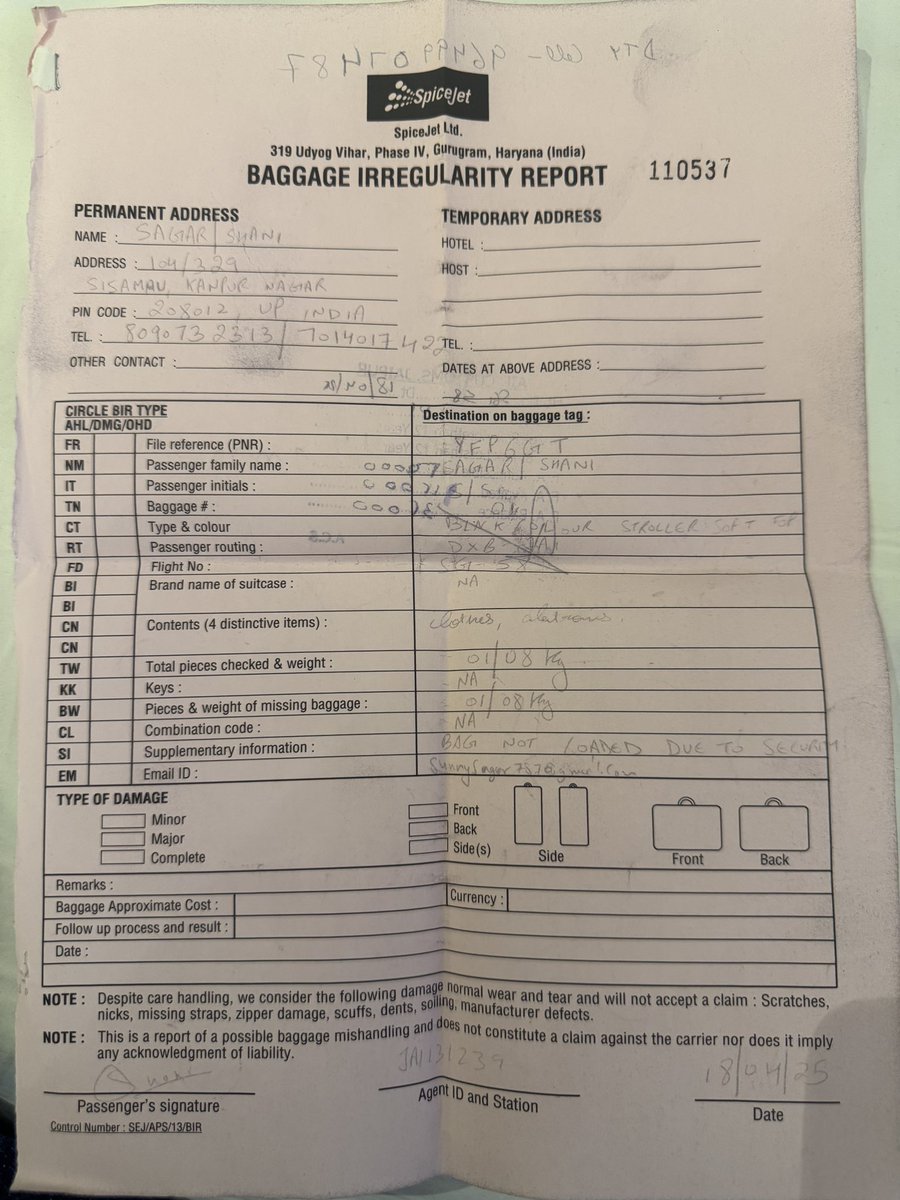 SpiceJet
SpiceJet Ltd.
319 Udyog Vihar, Phase IV, Gurugram, Haryana (India)
BAGGAGE IRREGULARITY REPORT 110537
PERMANENT ADDRESS TEMPORARY ADDRESS
NAME : SAGAR / SHANI HOTEL :
ADDRESS : 104/329 HOST :
SISAMAU, KANPUR NAGAR
PIN CODE : 208012, UP INDIA
TEL. : 8090732313 / 7014017422 TEL. :
OTHER CONTACT : DATES AT ABOVE ADDRESS :
CIRCLE BIR TYPE Destination on baggage tag :
AHL/DMG/OHD
FR File reference (PNR) : YEP6GT
NM Passenger family name : SAGAR / SHANI
IT Passenger initials :
TN Baggage # :
CT Type & colour STROLLER SOFT
RT Passenger routing : DXB
FD Flight No : SG-58
BI Brand name of suitcase : NA
BI
CN Contents (4 distinctive items) : clothes,
CN
TW Total pieces checked & weight : 01/08 Kg
KK Keys : NA
BW Pieces & weight of missing baggage : 01/08 Kg
CL Combination code : NA
SI Supplementary information : BAG NOT LOADED DUE TO SECURITY
EM Email ID : SunnySagar787@gmail.com
TYPE OF DAMAGE
Minor Front
Major Back
Complete Side(s)
Side Front Back
Remarks :
Baggage Approximate Cost : Currency :
Follow up process and result :
Date :
NOTE : Despite care handling, we consider the following damage normal wear and tear and will not accept a claim : Scratches,
nicks, missing straps, zipper damage, scuffs, dents, soiling, manufacturer defects.
NOTE : This is a report of a possible baggage mishandling and does not constitute a claim against the carrier nor does it imply
any acknowledgment of liability.
JAI131239 18/04/25
Passenger's signature Agent ID and Station Date
Control Number : SEJ/APS/13/BIR